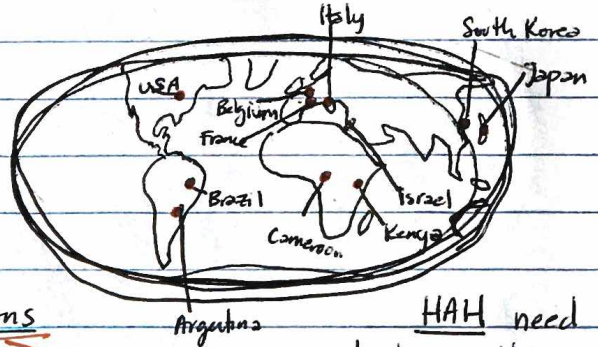 Italy
South Korea
USA
Japan
Belgium
France
Brazil
Israel
Cameroon
Kenya
Argentina
HAH need